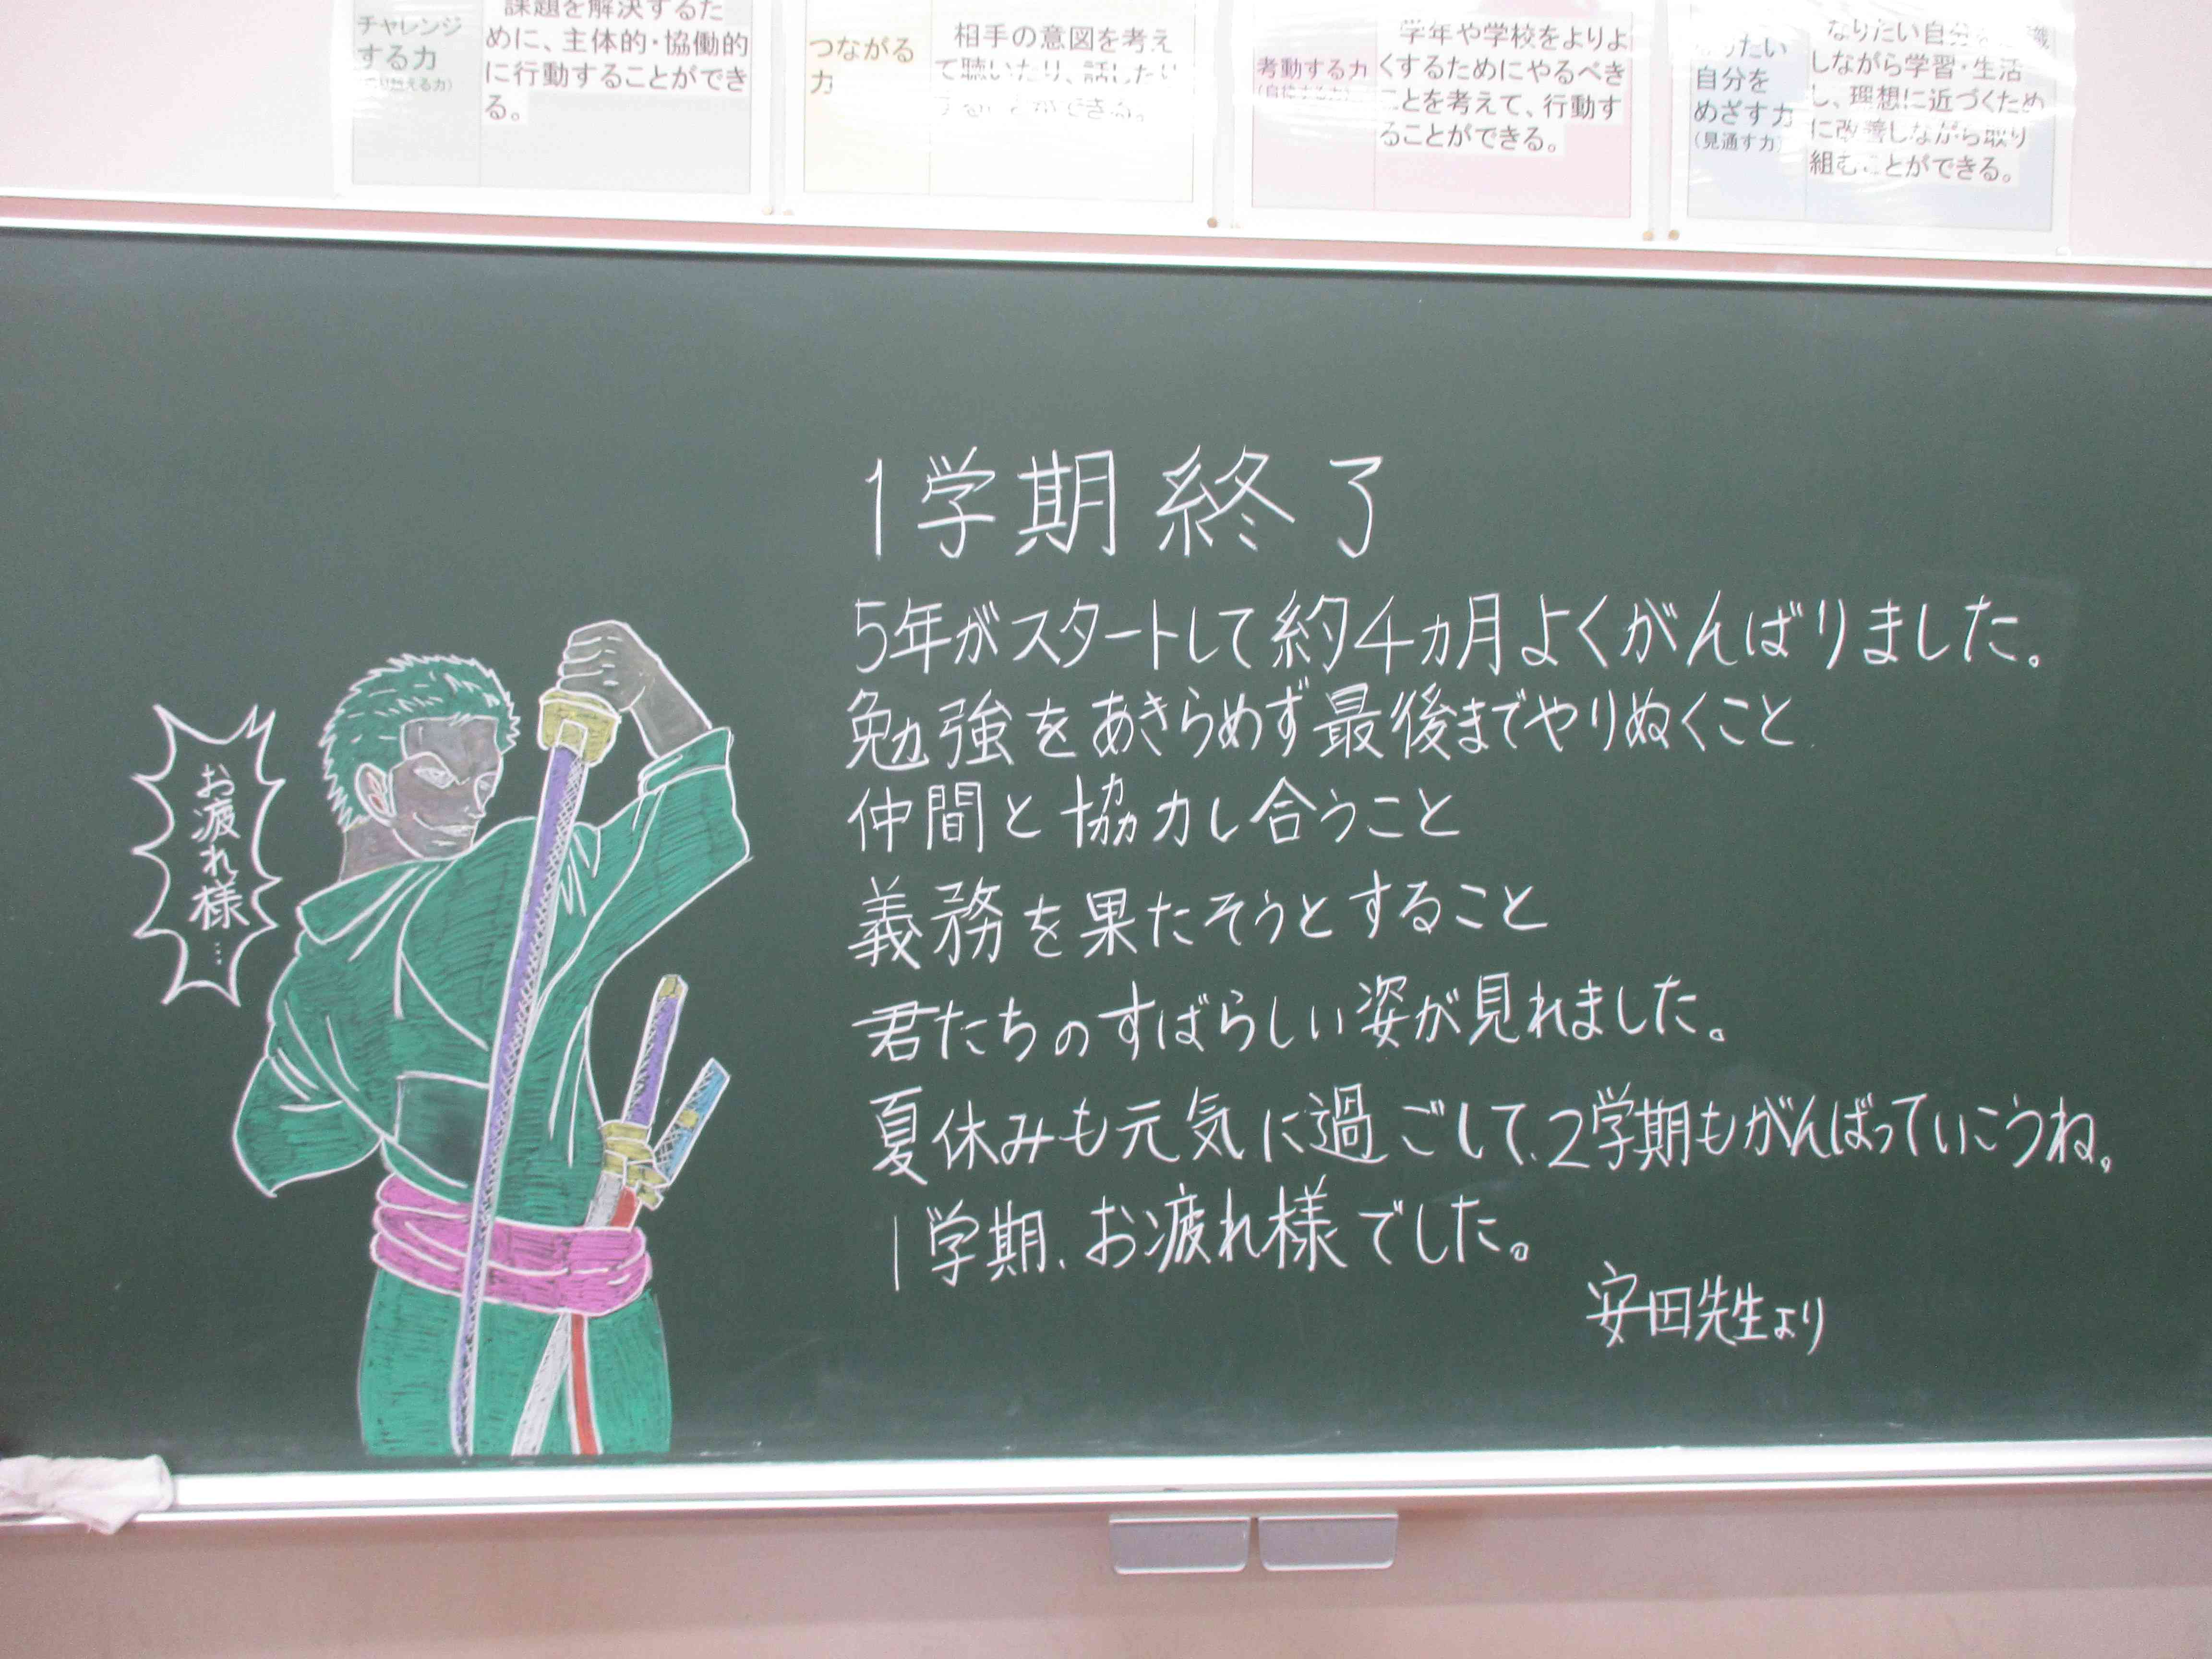 チャレンジ
する力
課題を解決するた
めに、主体的・協働的
に行動することができ
る。
つながる
力
相手の意図を考え
て聴いたり、話したり
することができる。
考動する力
学年や学校をよりよ
くするためにやるべき
ことを考えて、行動す
ることができる。
たい
自分を
めざす力
(見通す力)
なりたい自分
しながら学習・生活
し、理想に近づくため
に改善しながら取り
組むことができる。
1学期終了
5年がスタートして約4ヵ月よくがんばりました。
勉強をあきらめず最後までやりぬくこと
仲間と協力し合うこと
義務を果たそうとすること
君たちのすばらしい姿が見れました。
夏休みも元気に過ごして、2学期もがんばっていこうね。
1学期、お疲れ様でした。
安田先生より
お疲れ様…